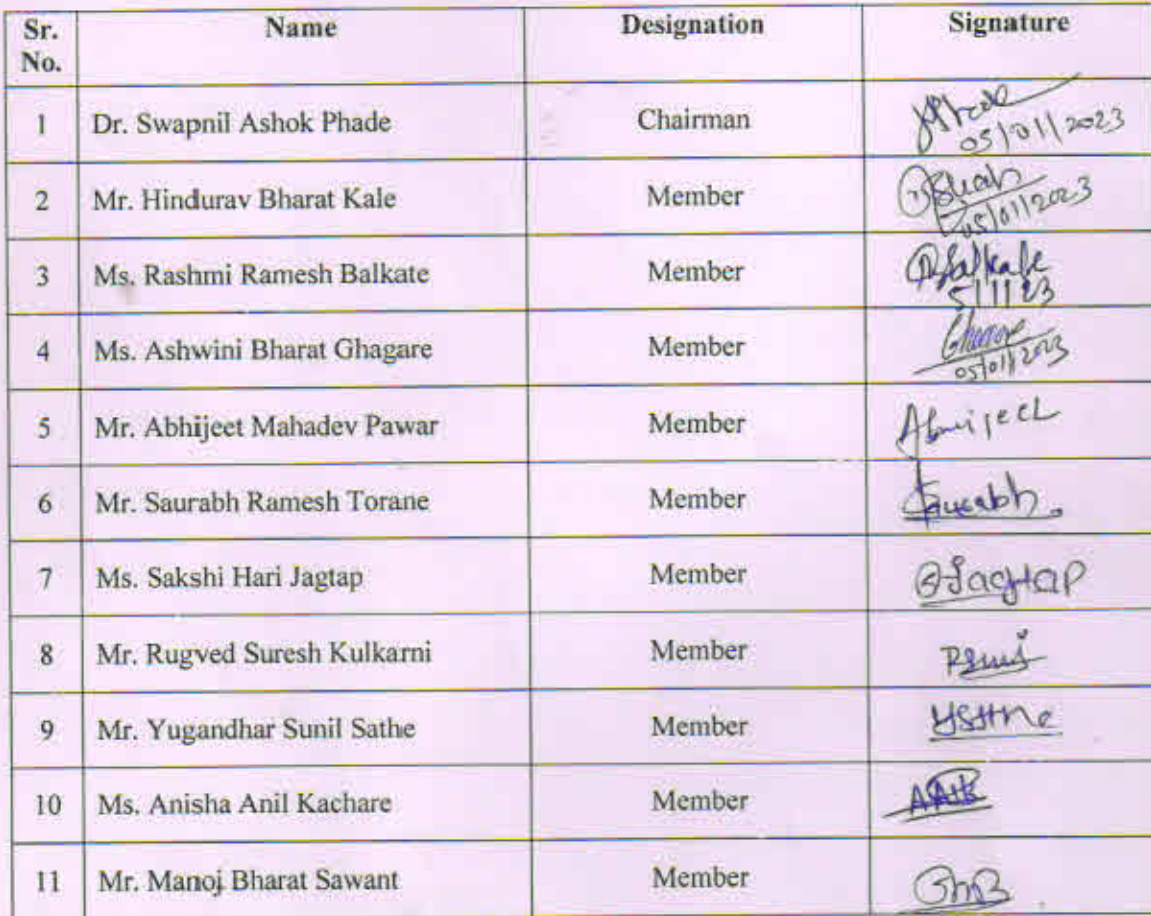 Sr. No. Name Designation Signature
1 Dr. Swapnil Ashok Phade Chairman
05/01/2023
2 Mr. Hindurav Bharat Kale Member
05/01/2023
3 Ms. Rashmi Ramesh Balkate Member RBalkate
5/1/23
4 Ms. Ashwini Bharat Ghagare Member
05/01/2023
5 Mr. Abhijeet Mahadev Pawar Member Abhijeet
6 Mr. Saurabh Ramesh Torane Member Saurabh.
7 Ms. Sakshi Hari Jagtap Member SJagtap
8 Mr. Rugved Suresh Kulkarni Member
9 Mr. Yugandhar Sunil Sathe Member
10 Ms. Anisha Anil Kachare Member
11 Mr. Manoj Bharat Sawant Member